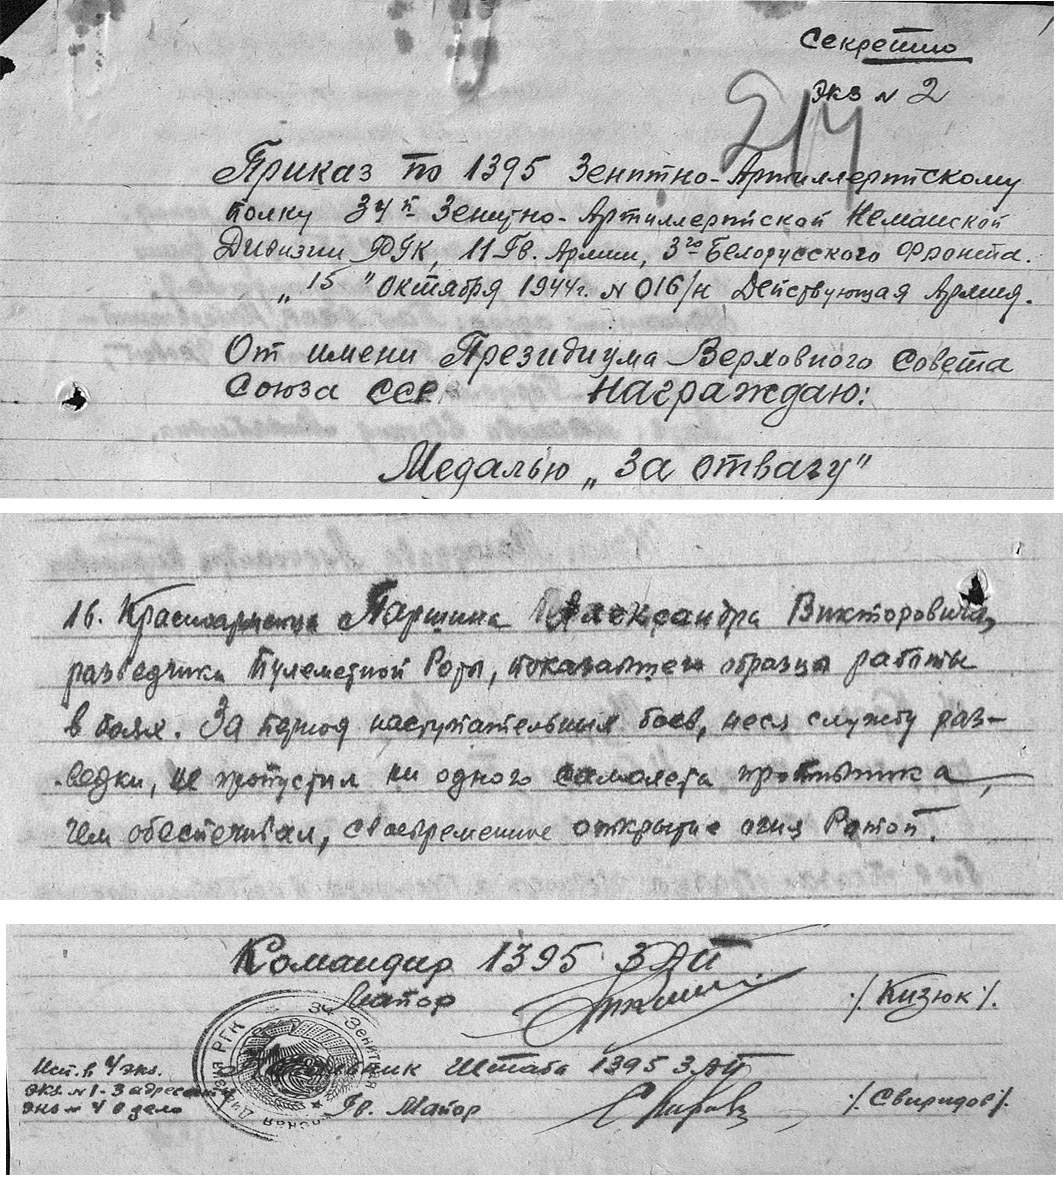 Секретно
Экз № 2
214
Приказ по 1395 Зенитно-Артиллерийскому
полку 34й Зенитно-Артиллерийской Неманской
Дивизии РГК, 11 Гв. Армии, 3го Белорусского Фронта.
„15" октября 1944г. № 016/н Действующая Армия.
От имени Президиума Верховного Совета
Союза ССР награждаю:
Медалью „За отвагу"
16. Красноармейца Паршина Александра Викторовича,
разведчика Пулеметной Роты, показавшего образцы работы
в боях. За период наступательных боев, неся службу раз-
ведки, не пропустил ни одного самолета противника,
чем обеспечивал, своевременное открытие огня Ротой.
Командир 1395 ЗАП
Майор /Кизюк/.
34 Зенитная Дивизия РГК
Начальник Штаба 1395 ЗАП
Гв. Майор /Свиридов/.
Исп. в 4 экз.
Экз. №1-3 адресату
Экз № 4 в дело